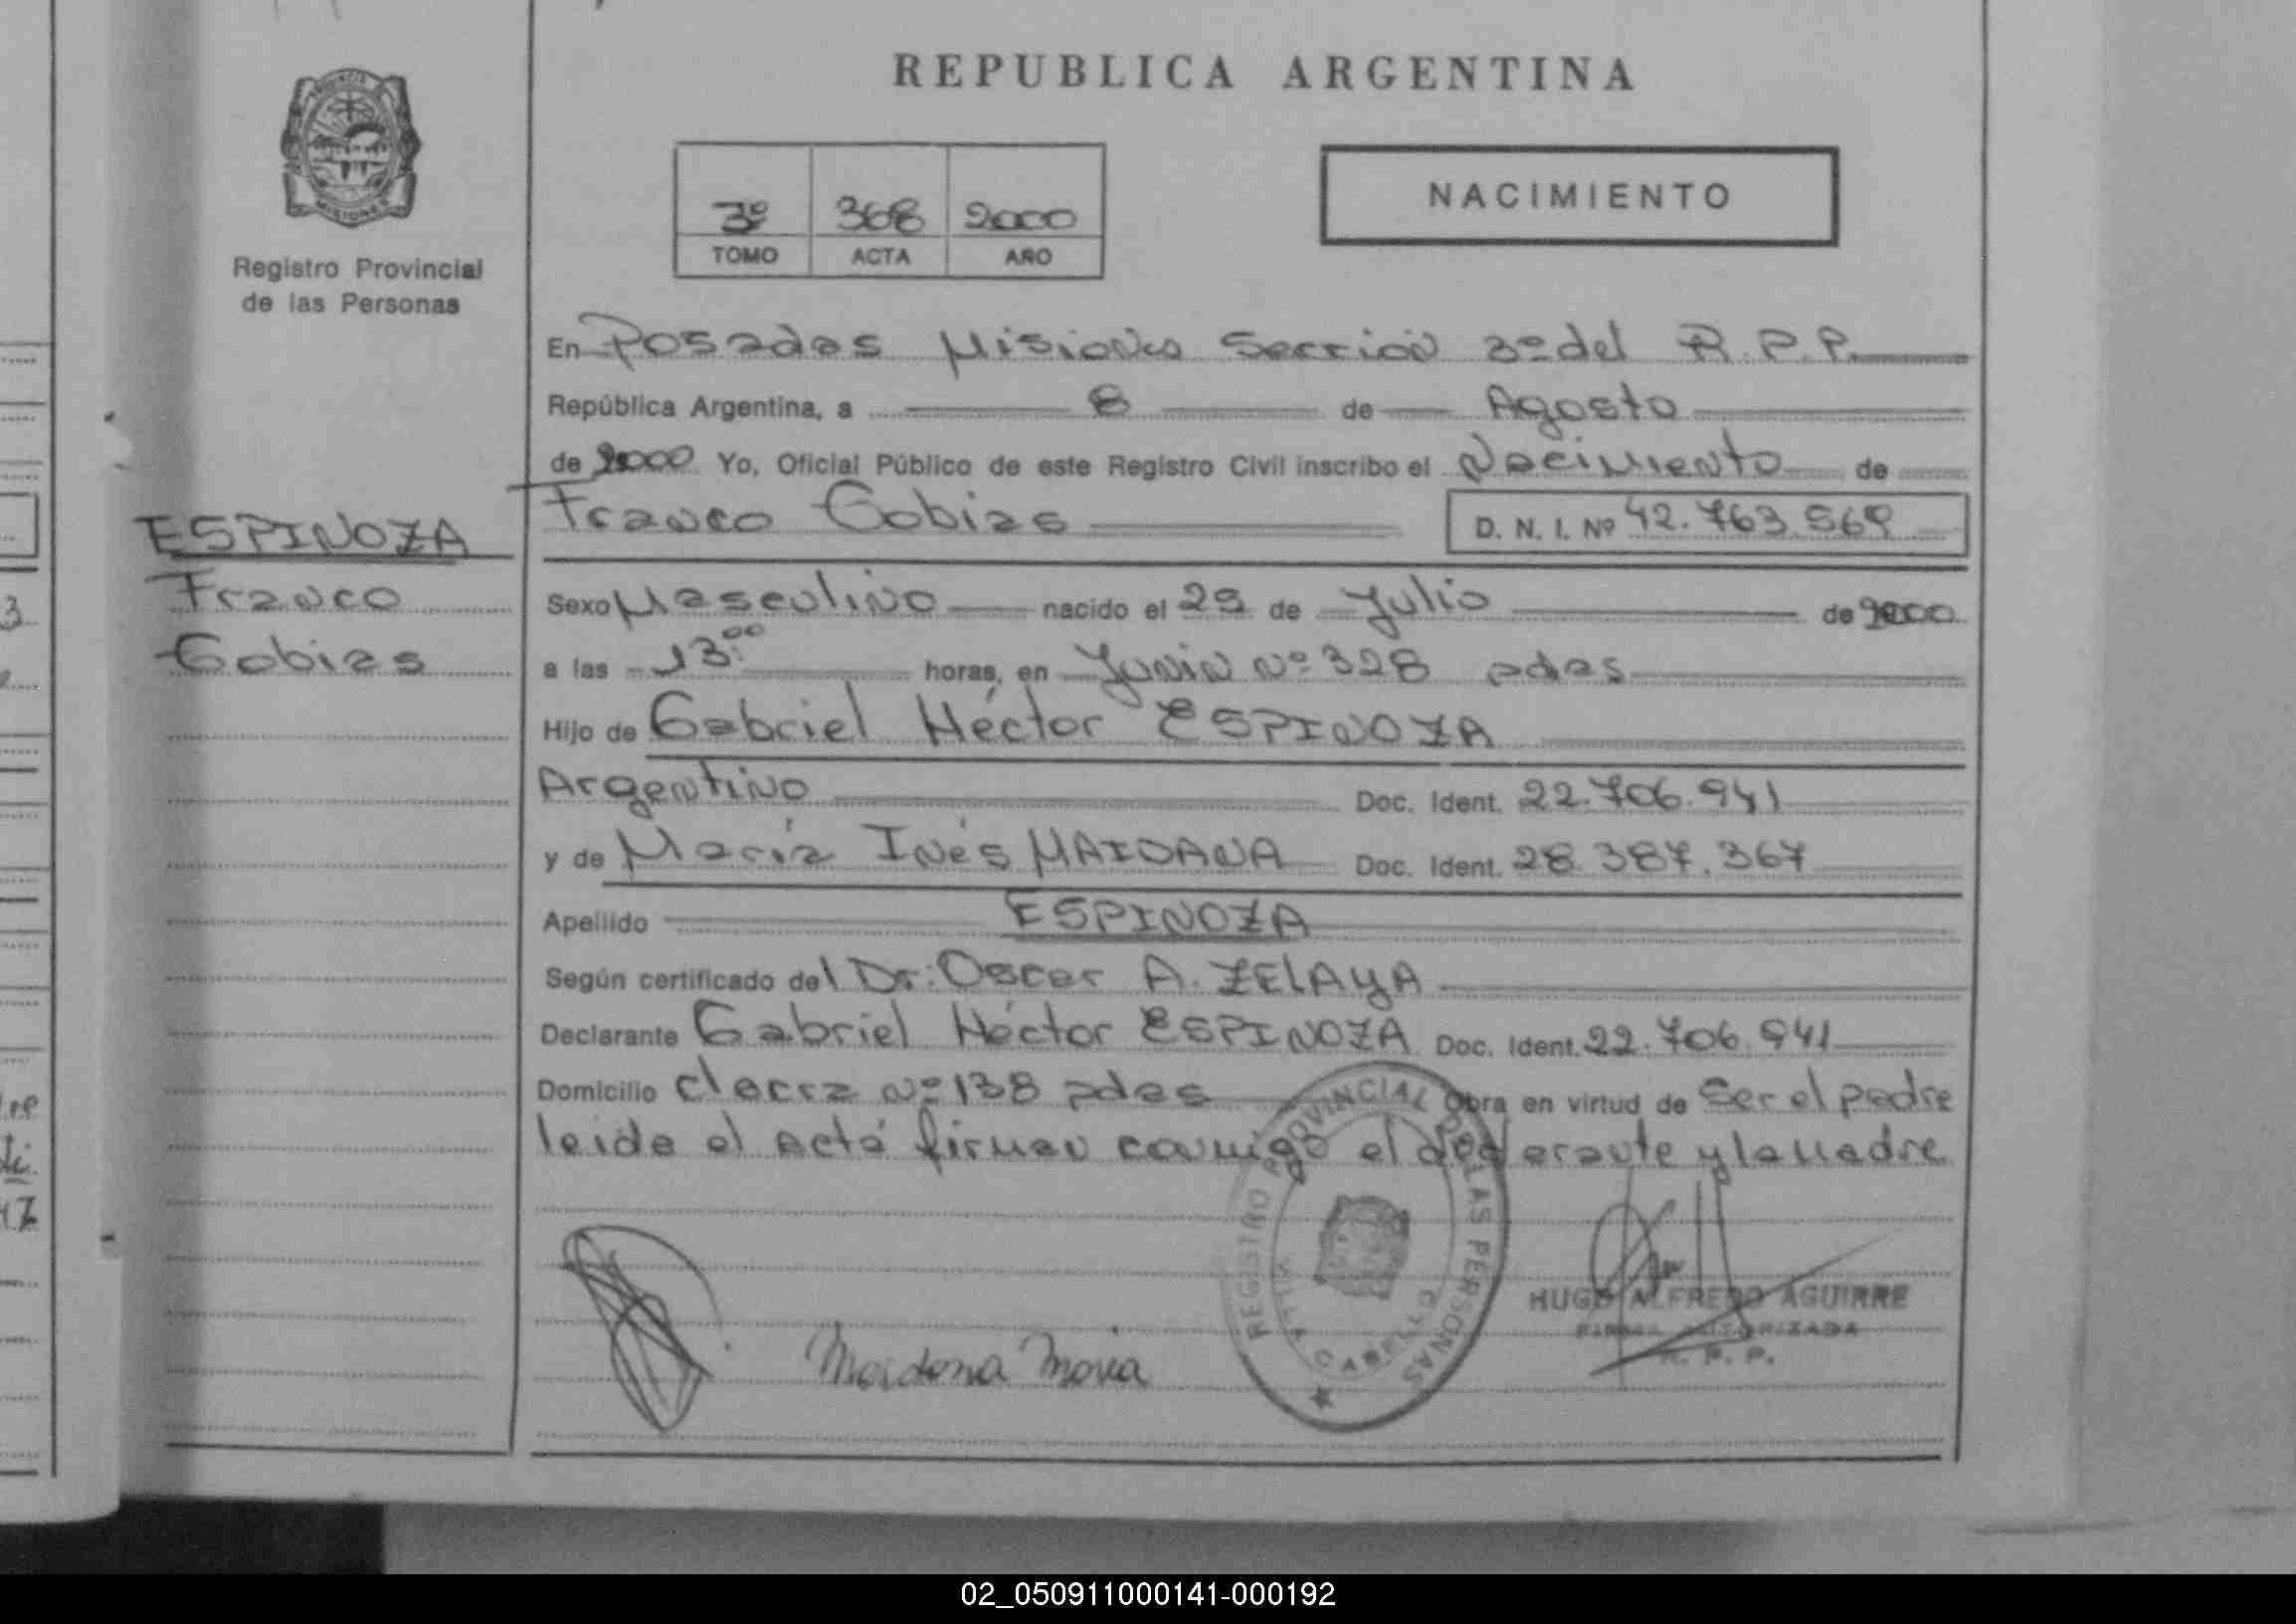 REPUBLICA ARGENTINA
PROVINCIA
MISIONES
Registro Provincial
de las Personas
3º 368 2000
TOMO ACTA AÑO
NACIMIENTO
En Posadas Misiones Sección 3º del R.P.P.
República Argentina, a 8 de Agosto
de 2000 Yo, Oficial Público de este Registro Civil inscribo el Nacimiento de
Franco Tobias D. N. I. Nº 42.763.569
ESPINOZA
Franco
Tobias
Sexo Masculino nacido el 29 de Julio de 2000
a las 13:00 horas, en Junin Nº 328 pdas
Hijo de Gabriel Héctor ESPINOZA
Argentino Doc. Ident. 22.706.941
y de María Inés MAIDANA Doc. Ident. 28.387.367
Apellido ESPINOZA
Según certificado del Dr: Oscar A. ZELAYA
Declarante Gabriel Héctor ESPINOZA Doc. Ident. 22.706.941
Domicilio Nº 138 pdas Obra en virtud de Ser el padre
leida el acta firman conmigo el declarante y la madre
REGISTRO PROVINCIAL DE LAS PERSONAS
Maidana Maria
HUGO ALFREDO AGUIRRE
FIRMA AUTORIZADA
R. P. P.
02_050911000141-000192